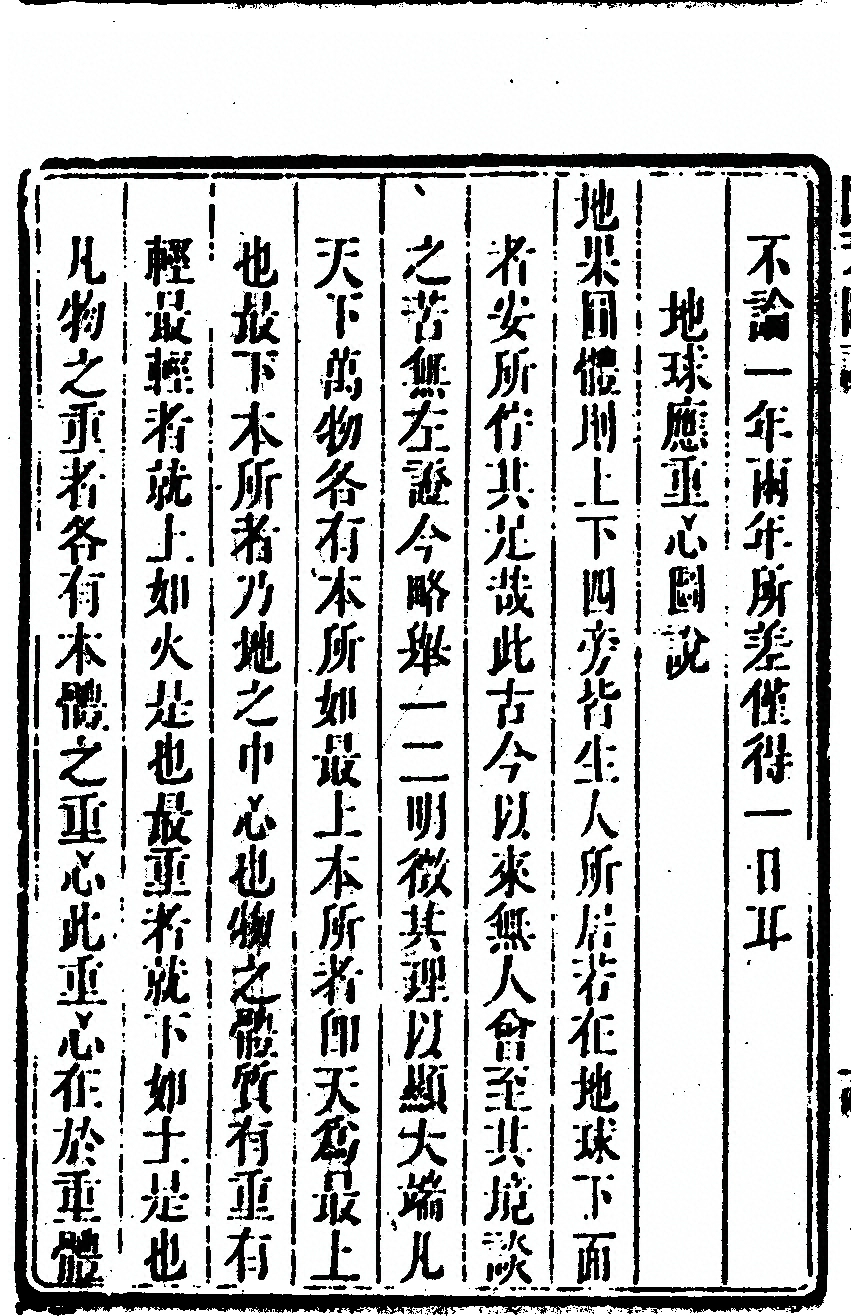 不論一年兩年所差僅得一日耳
地球應重心圖說
地果圓體則上下四旁皆生人所居若在地球下面
者安所作其足哉此古今以來無人曾至其境談
之苦無左證今略舉一二明徵其理以顯大端凡
天下萬物各有本所如最上本所者卽天爲最上
也最下本所者乃地之中心也物之體質有重有
輕最輕者就上如火是也最重者就下如土是也
凡物之重者各有本體之重心此重心在於重體